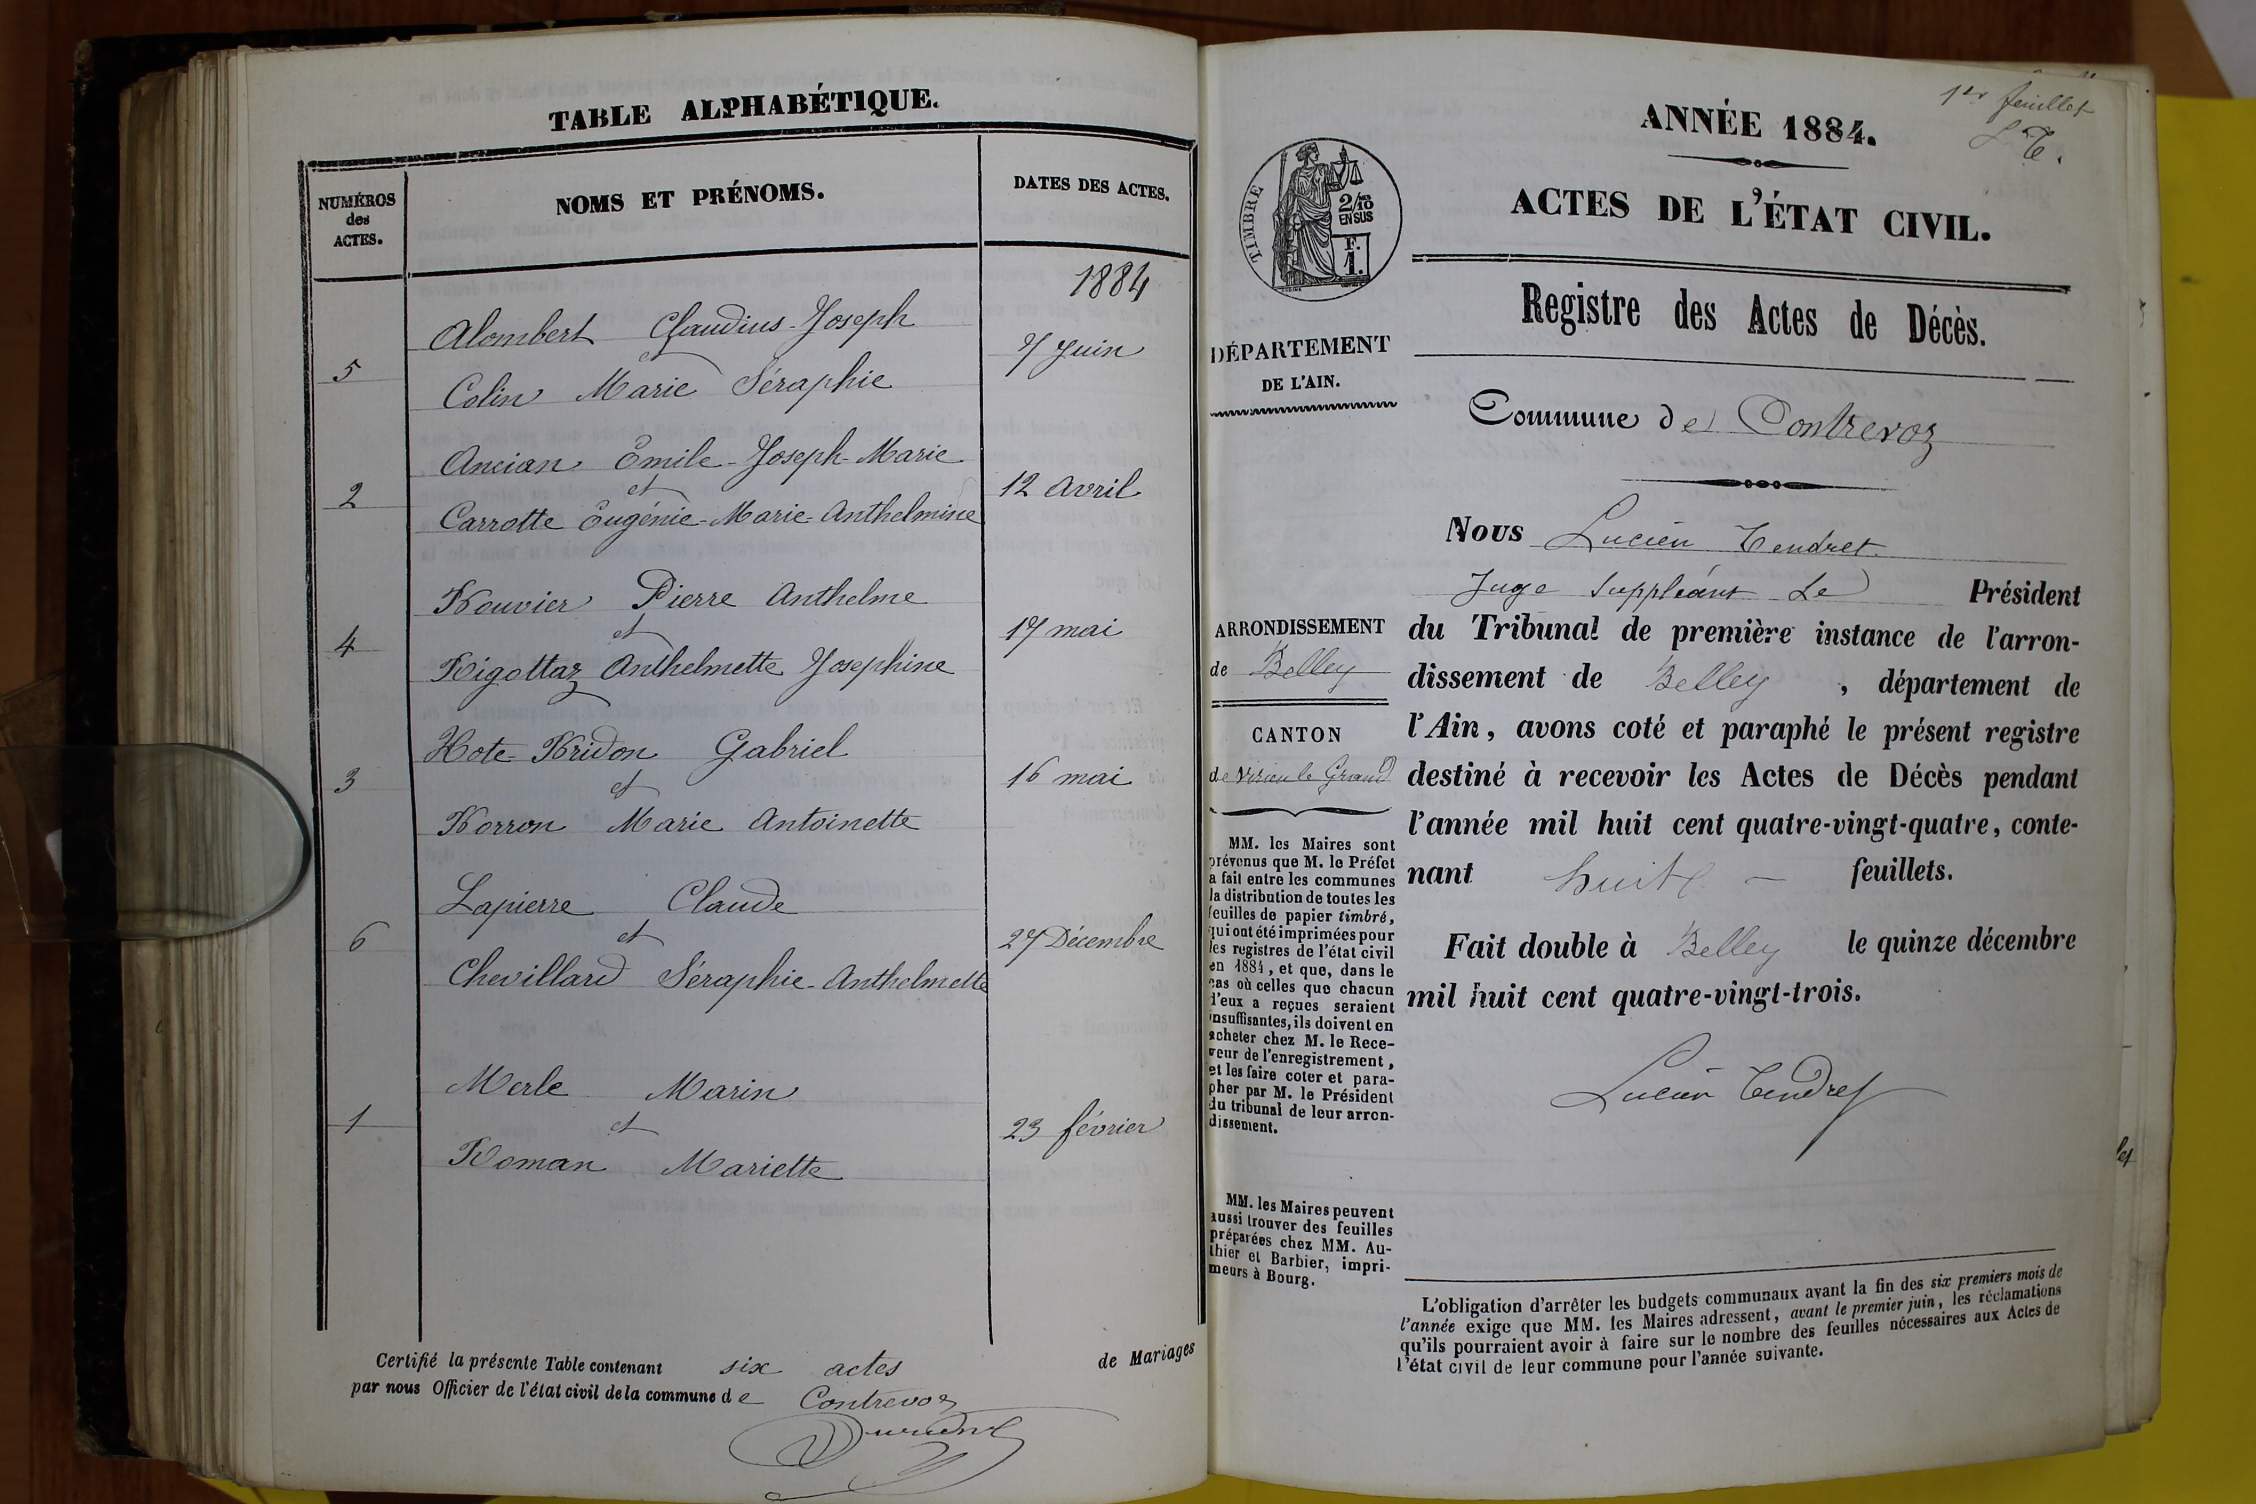 TABLE ALPHABÉTIQUE.
NUMÉROS
des
ACTES.
NOMS ET PRÉNOMS.
DATES DES ACTES.
1884
Alombert Claudius-Joseph
et
5
7 Juin
Colin Marie Séraphie
Ancian Emile-Joseph-Marie
et
2
12 Avril
Carrotte Eugénie-Marie-Anthelmine
Bouvier Pierre Anthelme
et
4
17 mai
Rigottaz Anthelmette Josephine
Hote-Bridon Gabriel
et
3
16 mai
Borron Marie Antoinette
Lapierre Claude
et
6
27 Décembre
Chevillard Séraphie-Anthelmette
Merle Marin
et
1
23 février
Roman Mariette
Certifié la présente Table contenant six actes de Mariages
par nous Officier de l'état civil de la commune de Contrevoz
1er feuillet
L T.
ANNÉE 1884.
ACTES DE L'ÉTAT CIVIL.
TIMBRE
2/10
EN SUS
F.
1.
Registre des Actes de Décès.
DÉPARTEMENT
DE L'AIN.
Commune de Contrevoz
Nous Lucien Tendret
Juge Suppléant Le Président
du Tribunal de première instance de l'arron-
dissement de Belley, département de
l'Ain, avons coté et paraphé le présent registre
destiné à recevoir les Actes de Décès pendant
l'année mil huit cent quatre-vingt-quatre, conte-
nant huit feuillets.
Fait double à Belley le quinze décembre
mil huit cent quatre-vingt-trois.
Lucien Tendret
ARRONDISSEMENT
de Belley
CANTON
de Virieu le Grand
MM. les Maires sont
prévenus que M. le Préfet
a fait entre les communes
la distribution de toutes les
feuilles de papier timbré,
qui ont été imprimées pour
les registres de l'état civil
en 1884, et que, dans le
cas où celles que chacun
d'eux a reçues seraient
insuffisantes, ils doivent en
acheter chez M. le Rece-
veur de l'enregistrement,
et les faire coter et para-
pher par M. le Président
du tribunal de leur arron-
dissement.
MM. les Maires peuvent
aussi trouver des feuilles
préparées chez MM. Au-
thier et Barbier, impri-
meurs à Bourg.
L'obligation d'arrêter les budgets communaux avant la fin des six premiers mois de
l'année exige que MM. les Maires adressent, avant le premier juin, les réclamations
qu'ils pourraient avoir à faire sur le nombre des feuilles nécessaires aux Actes de
l'état civil de leur commune pour l'année suivante.